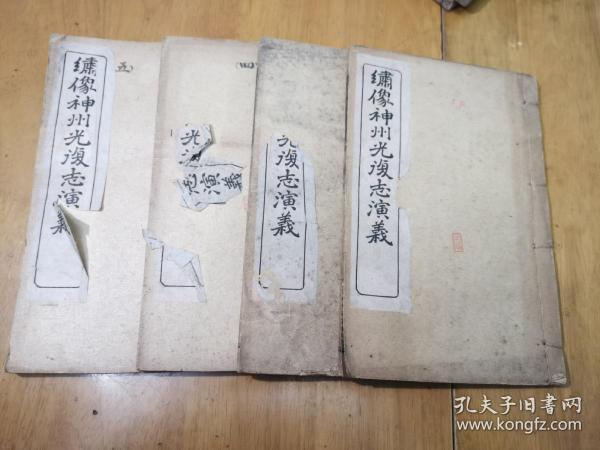 繡像神州光復志演義
光復志演義
光
志演義
(四)
繡像神州光復志演義
(五)
孔夫子旧书网
www.kongfz.com